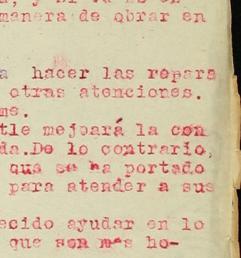 manera de obrar en
hacer las repara
otras atenciones.
me.
tle mejoará la con
da.De lo contrario,
que se ha portado
para atender a sus
ecido ayudar en lo
que son mas ho-